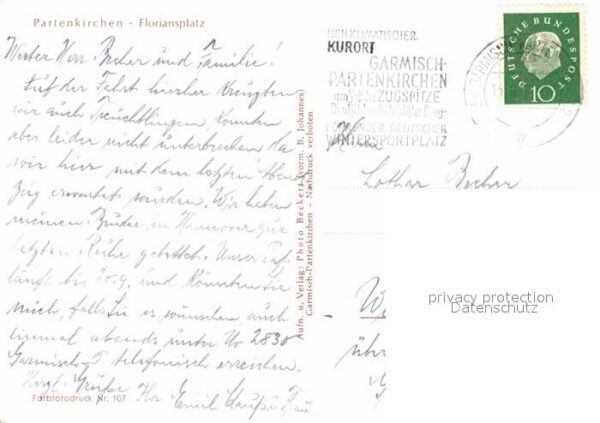 Partenkirchen - Floriansplatz
Werter Herr Becher und Familie!
Auf der Fahrt hierher kreuzten
wir auch Treuchtlingen, konnten
aber leider nicht unterbrechen da
wir hier mit dem letzten Abend
zug erwartet wurden. Wir haben
meinen Bruder in Hannover zur
letzten Ruhe gebettet. Unser
läuft bis und könnten Sie
mich, falls Sie es wünschen auch
einmal abends unter No 2830
Garmisch-P. telefonisch erreichen.
Herzl. Grüße Ihr Emil u. Frau
Farbfotodruck Nr. 107
Aufn. u. Verlag: Photo Beckert (vorm. B. Johannes)
Garmisch-Partenkirchen - Nachdruck verboten
HEILKLIMATISCHER
KURORT
GARMISCH-
PARTENKIRCHEN
ZUGSPITZE
DEUTSCHER
WINTERSPORTPLATZ
DEUTSCHE BUNDESPOST
10
Herrn
Lothar Becher
privacy protection
Datenschutz